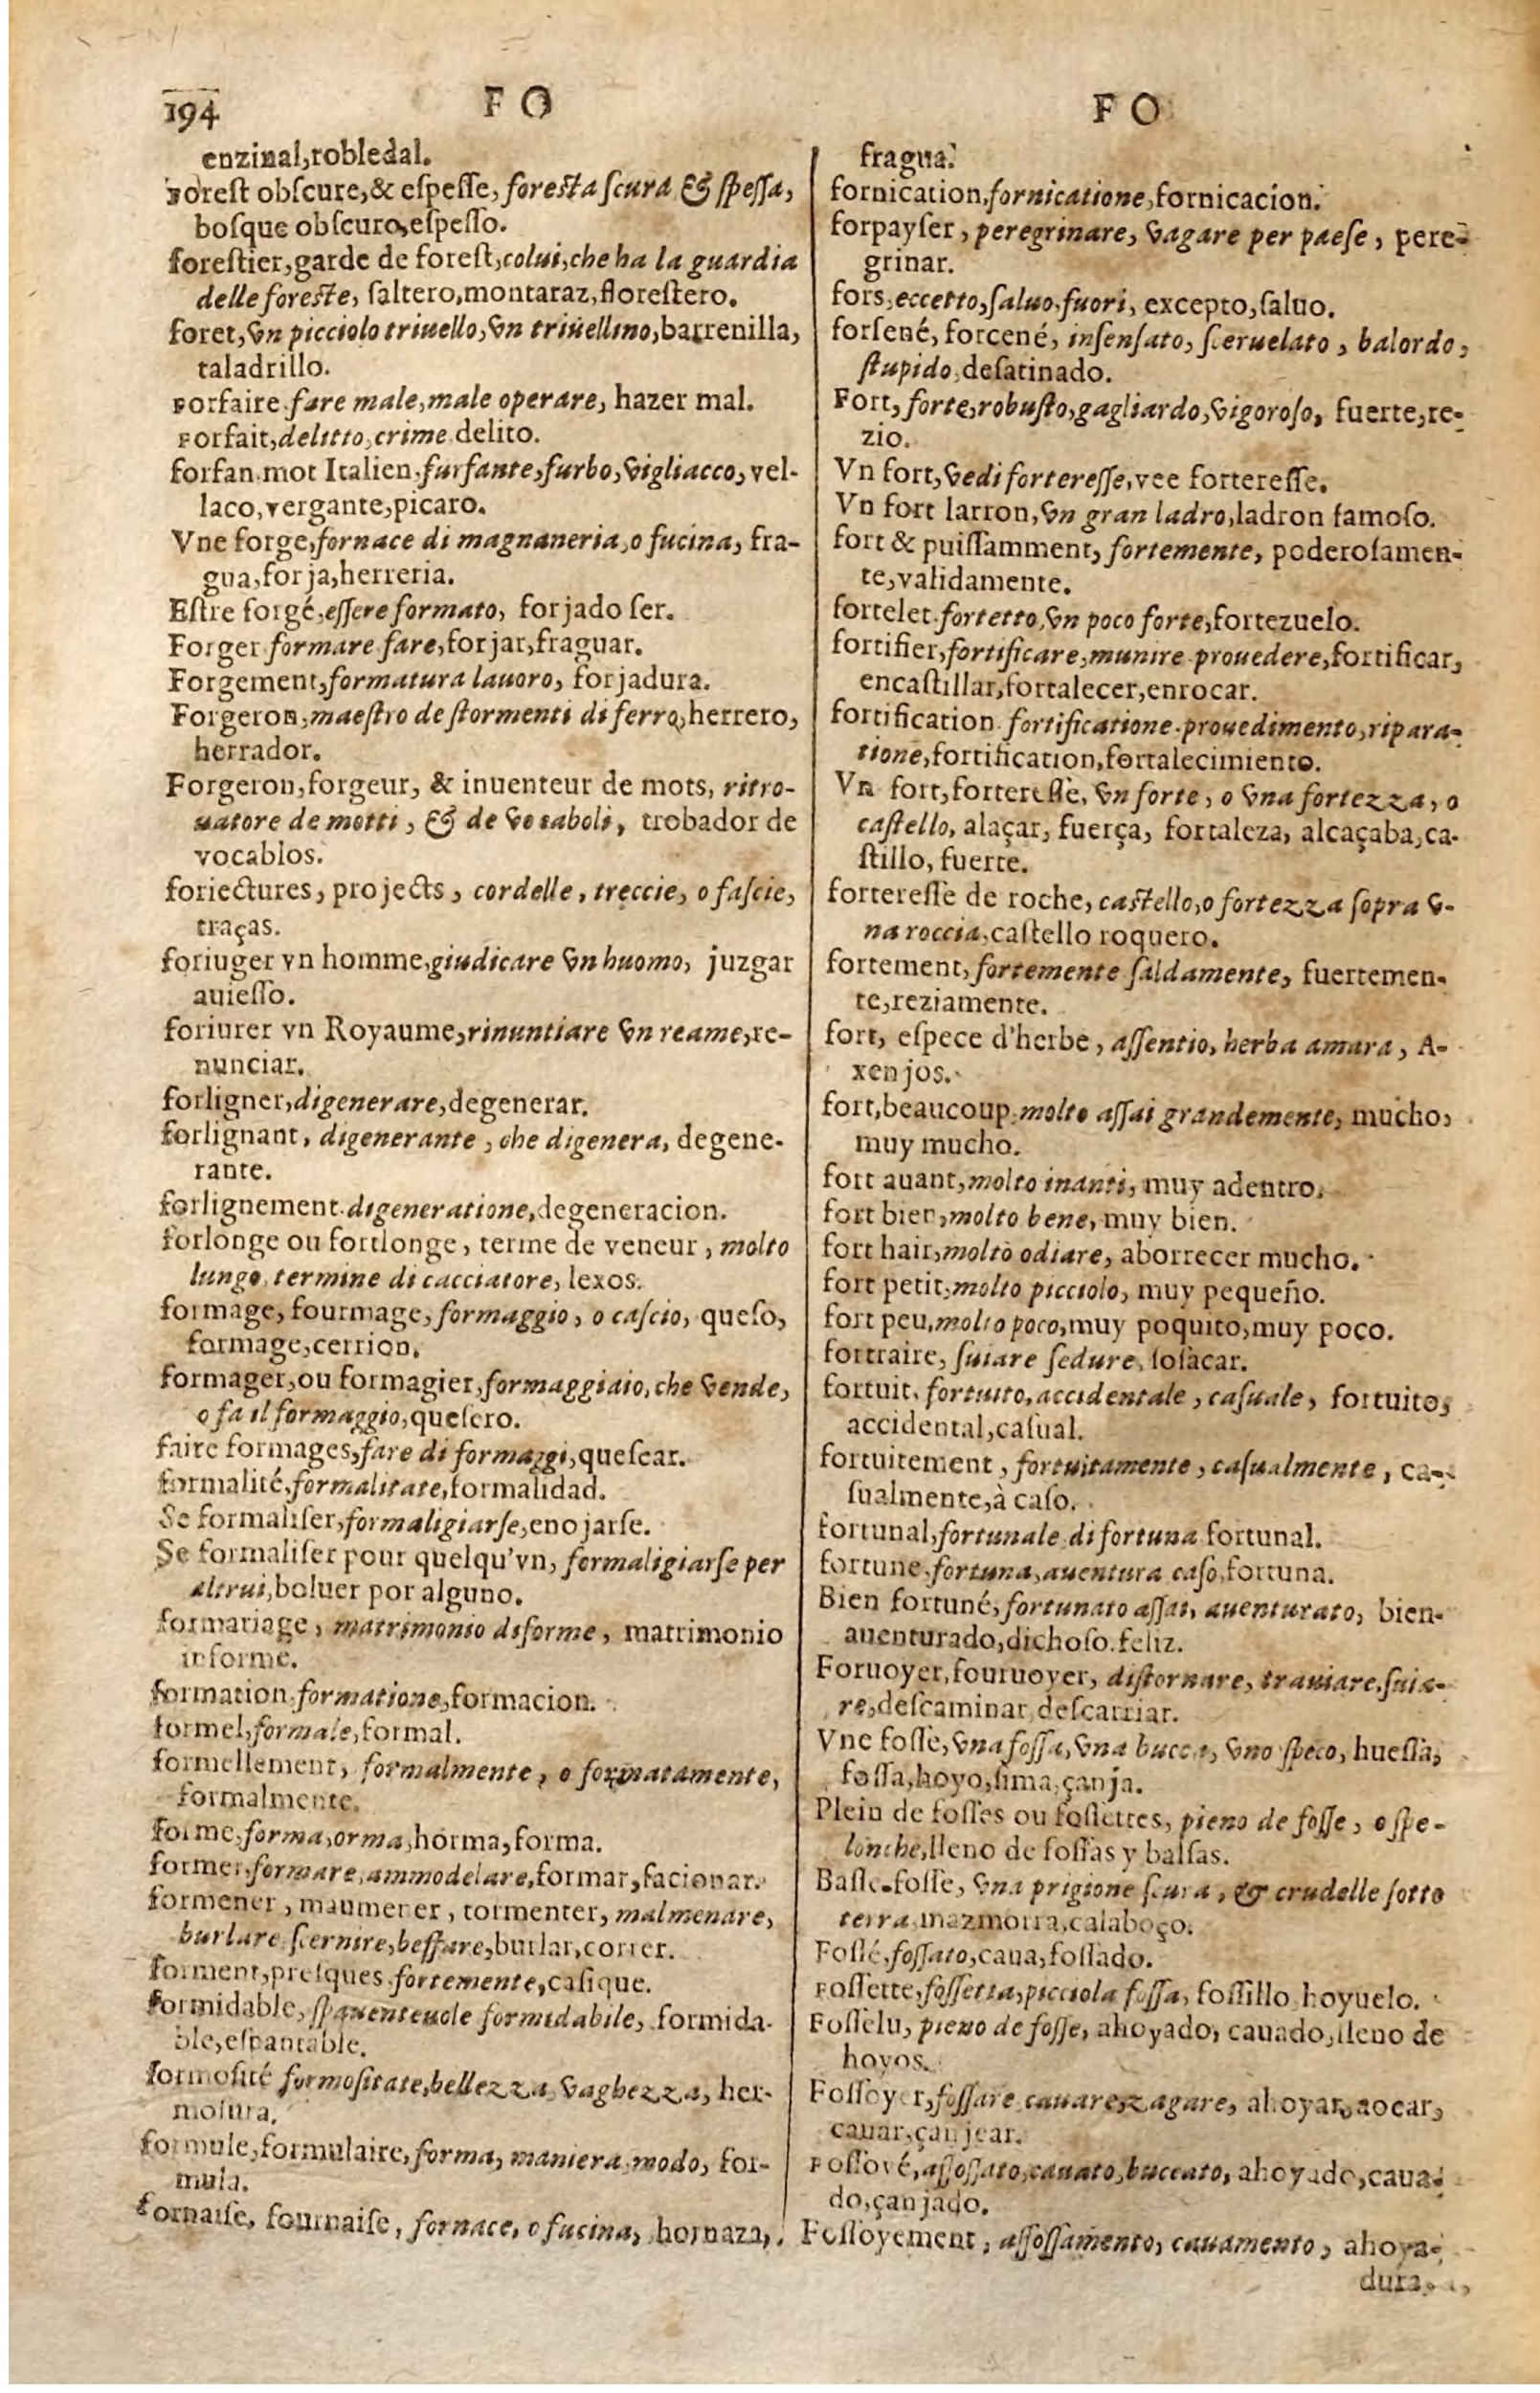 194
F O
enzinal,robledal.
Forest obſcure,& eſpeſſe, foresta ſcura & ſpeſſa,
boſque obſcuro,eſpeſſo.
foreſtier,garde de foreſt,colui,che ha la guardia
delle foreste, ſaltero,montaraz,floreſtero.
foret,vn picciolo triuello,vn triuellino,barrenilla,
taladrillo.
Forfaire.fare male,male operare, hazer mal.
Forfait,delitto,crime.delito.
forfan.mot Italien.furfante,furbo,vigliacco, vel-
laco,vergante,picaro.
Vne forge,fornace di magnaneria,o fucina, fra-
gua,forja,herreria.
Eſtre forgé,eſſere formato, forjado ſer.
Forger formare.fare,forjar,fraguar.
Forgement,formatura lauoro, forjadura.
Forgeron,maeſtro de ſtormenti di ferro,herrero,
herrador.
Forgeron,forgeur, & inuenteur de mots, ritro-
uatore de motti, & de vocaboli, trobador de
vocablos.
foriectures, projects, cordelle, treccie, o faſcie,
traças.
foriuger vn homme,giudicare vn huomo, juzgar
auieſſo.
foriurer vn Royaume,rinuntiare vn reame,re-
nunciar.
forligner,digenerare,degenerar.
forlignant, digenerante, che digenera, degene-
rante.
forlignement.digeneratione,degeneracion.
forlonge ou fortlonge, terme de veneur, molto
lungo, termine di cacciatore, lexos.
formage, fourmage, formaggio, o caſcio, queſo,
formage,cerrion.
formager,ou formagier,formaggiaio,che vende,
o fa il formaggio,queſero.
faire formages,fare di formaggi,queſear.
formalité,formalitate,formalidad.
Se formaliſer,formaligiarſe,enojarſe.
Se formaliſer pour quelqu'vn, formaligiarſe per
altrui,boluer por alguno.
formariage, matrimonio diforme, matrimonio
informe.
formation,formatione,formacion.
formel,formale,formal.
formellement, formalmente, o formatamente,
formalmente.
forme,forma,orma,horma,forma.
former,formare,ammodelare,formar,facionar.
formener, maumener, tormenter, malmenare,
burlare ſcernire,beffare,burlar,correr.
forment,preſques.fortemente,caſique.
formidable, ſpauenteuole formidabile, formida-
ble,eſpantable.
formoſité formoſitate,bellezza,vaghezza, her-
moſura.
formule,formulaire,forma, maniera,modo, for-
mula.
fornaiſe, fournaiſe, fornace, o fucina, hornaza,
F O
fragua.
fornication,fornicatione,fornicacion.
forpayſer, peregrinare, vagare per paeſe, pere-
grinar.
fors,eccetto,ſaluo,fuori, excepto,ſaluo.
forſené, forcené, inſenſato, ſceruelato, balordo,
ſtupido,deſatinado.
Fort, forte,robuſto,gagliardo,vigoroſo, fuerte,re-
zio.
Vn fort,vedi fortereſſe,vee fortereſſe.
Vn fort larron,vn gran ladro,ladron famoſo.
fort & puiſſamment, fortemente, poderoſamen-
te,validamente.
fortelet.fortetto,vn poco forte,fortezuelo.
fortifier,fortificare,munire.prouedere,fortificar,
encaſtillar,fortalecer,enrocar.
fortification.fortificatione.prouedimento,ripara-
tione,fortification,fortalecimiento.
Vn fort,fortereſſe, vn forte, o vna fortezza, o
caſtello, alaçar, fuerça, fortaleza, alcaçaba,ca-
ſtillo, fuerte.
fortereſſe de roche, castello,o fortezza ſopra v-
na roccia,caſtello roquero.
fortement, fortemente ſaldamente, fuertemen-
te,reziamente.
fort, eſpece d'herbe, aſſentio, herba amara, A-
xenjos.
fort,beaucoup.molto aſſai grandemente, mucho,
muy mucho.
fort auant,molto inanti, muy adentro.
fort bien,molto bene, muy bien.
fort hair,molto odiare, aborrecer mucho.
fort petit,molto picciolo, muy pequeño.
fort peu,molto poco,muy poquito,muy poco.
fortraire, ſuiare ſedure, ſoſacar.
fortuit, fortuito,accidentale, caſuale, fortuito,
accidental,caſual.
fortuitement, fortuitamente, caſualmente, ca-
ſualmente,à caſo.
fortunal,fortunale di fortuna fortunal.
fortune,fortuna,auentura caſo,fortuna.
Bien fortuné,fortunato aſſai, auenturato, bien-
auenturado,dichoſo.feliz.
Foruoyer,fouruoyer, diſtornare, trauiare,ſuia-
re,deſcaminar,deſcarriar.
Vne foſſe,vna foſſa,vna bucca, vno ſpeco, hueſſa,
foſſa,hoyo,ſima,çanja.
Plein de foſſes ou foſſettes, pieno de foſſe, o ſpe-
lonche,lleno de foſſas y balſas.
Baſſe-foſſe, vna prigione ſcura, & crudelle ſotto
terra mazmorra,calaboço.
Foſſé,foſſato,caua,foſſado.
Foſſette,foſſetta,picciola foſſa, foſſillo hoyuelo.
Foſſelu, pieno de foſſe, ahoyado, cauado,lleno de
hoyos.
Foſſoyer,foſſare cauare,zagare, ahoyar,aocar,
cauar,çanjear.
Foſſoyé,aſſoſſato,cauato,buccato, ahoyado,caua-
do,çanjado.
Foſſoyement, aſſoſſamento, cauamento, ahoya-
dura.